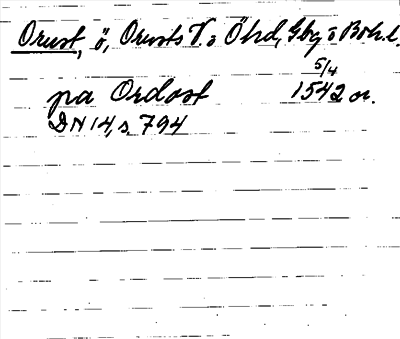 Orust, ö, Orusts V. o Öhd, Gbg o Boh. l.
5/4
pa Ordost 1542 or.
DN 14, s. 794